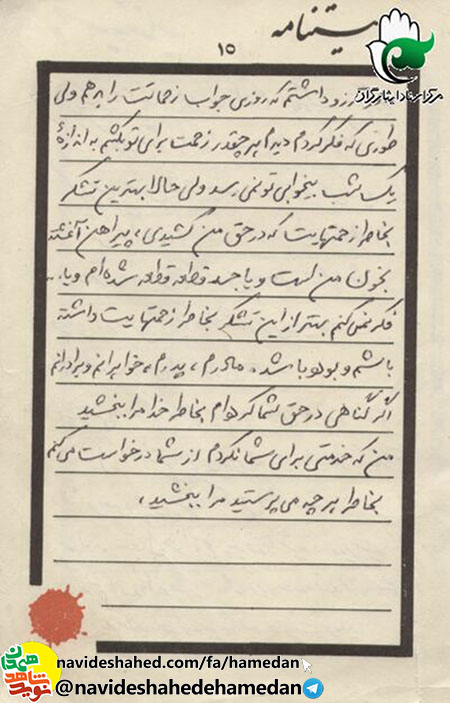 وصیتنامه
۱۵
مرکز اسناد ایثارگران
آرزو داشتم که روزی جواب زحمات را بدهم ولی
طوری که فکر کردم دیدم هر چقدر زحمت برای تو بکشم به اندازهٔ
یک شب بیخوابی تو نمی رسد ولی حالا بهترین تشکر
بخاطر زحمتهایت که در حق من کشیدی، پیراهن آغشته
بخون من است و یا جسد قطعه قطعه شده ام و یا..
فکر نمی کنم بهتر از این تشکر بخاطر زحمتهایت داشته
باشم و بوده باشد. مادرم، پدرم، خواهرانم و برادرانم
اگر گناهی در حق شما کرده ام بخاطر خدا مرا ببخشید
من که خدمتی برای شما نکردم از شما درخواست می کنم
بخاطر هر چه می پرستید مرا ببخشید،
نوید شاهد همدان
navideshahed.com/fa/hamedan
@navideshahedehamedan